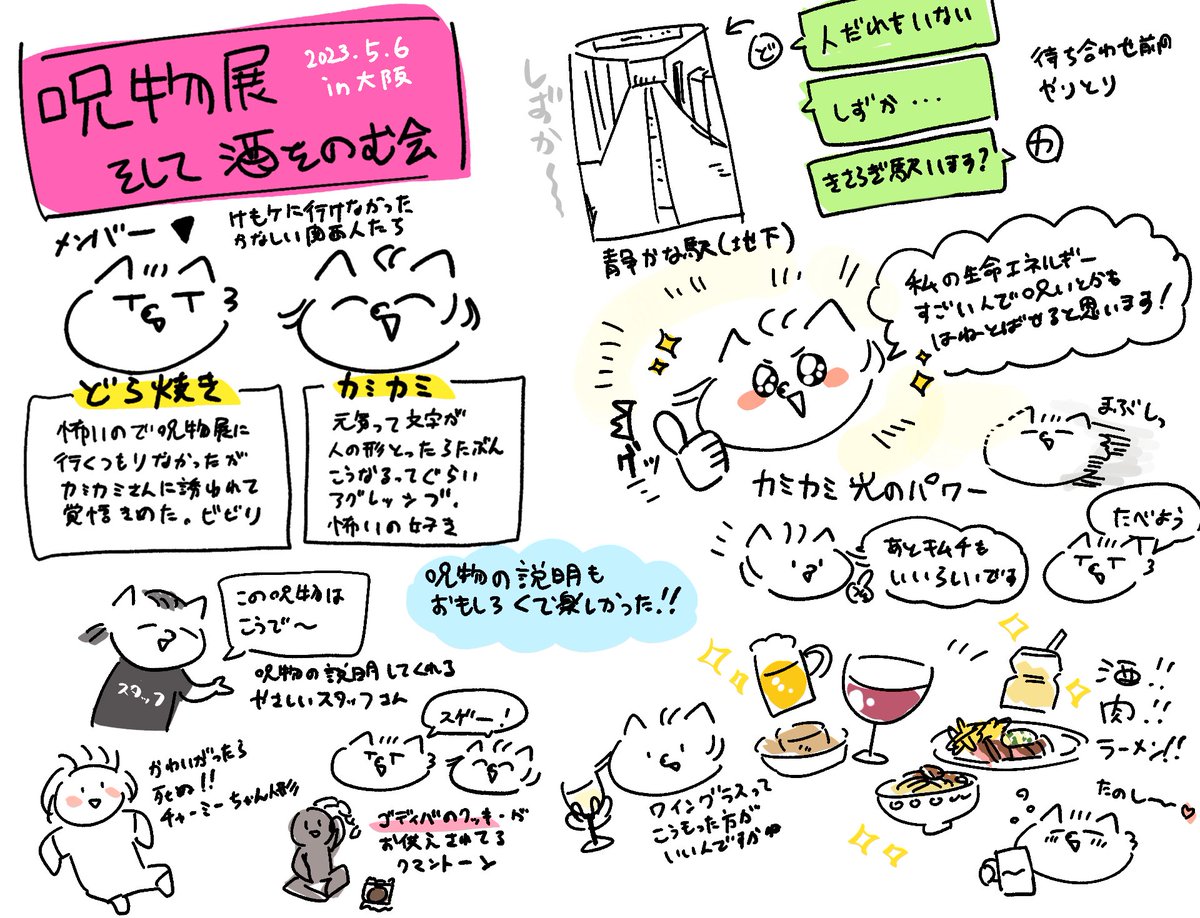 呪物展
2023.5.6
in大阪
そして酒をのむ会
メンバー▼
けもケに行けなかった
かなしい関西人たち
どら焼き
怖いので呪物展に
行くつもりなかったが
カミカミさんに誘われて
覚悟きめた。ビビリ
カミカミ
元気って文字が
人の形とったらたぶん
こうなるってぐらい
アグレッシブ。
怖いの好き
しずか〜
静かな駅(地下)
ど
人だれもいない
しずか...
きさらぎ駅います?
カ
待ち合わせ前の
やりとり
私の生命エネルギー
すごいんで呪いとかも
はねとばせると思います!
まぶしっ
カミカミ光のパワー
あとキムチも
いいらしいです
たべよう
呪物の説明も
おもしろくて楽しかった!!
この呪物は
こうで〜
スタッフ
呪物の説明してくれる
やさしいスタッフさん
スゲー!
かわいがったら
死ぬ!!
チャーミーちゃん人形
ゴディバのクッキーが
お供えされてる
クマントーン
ワイングラスって
こうもった方が
いいんですかw
酒!!
肉!!
ラーメン!!
たのし〜